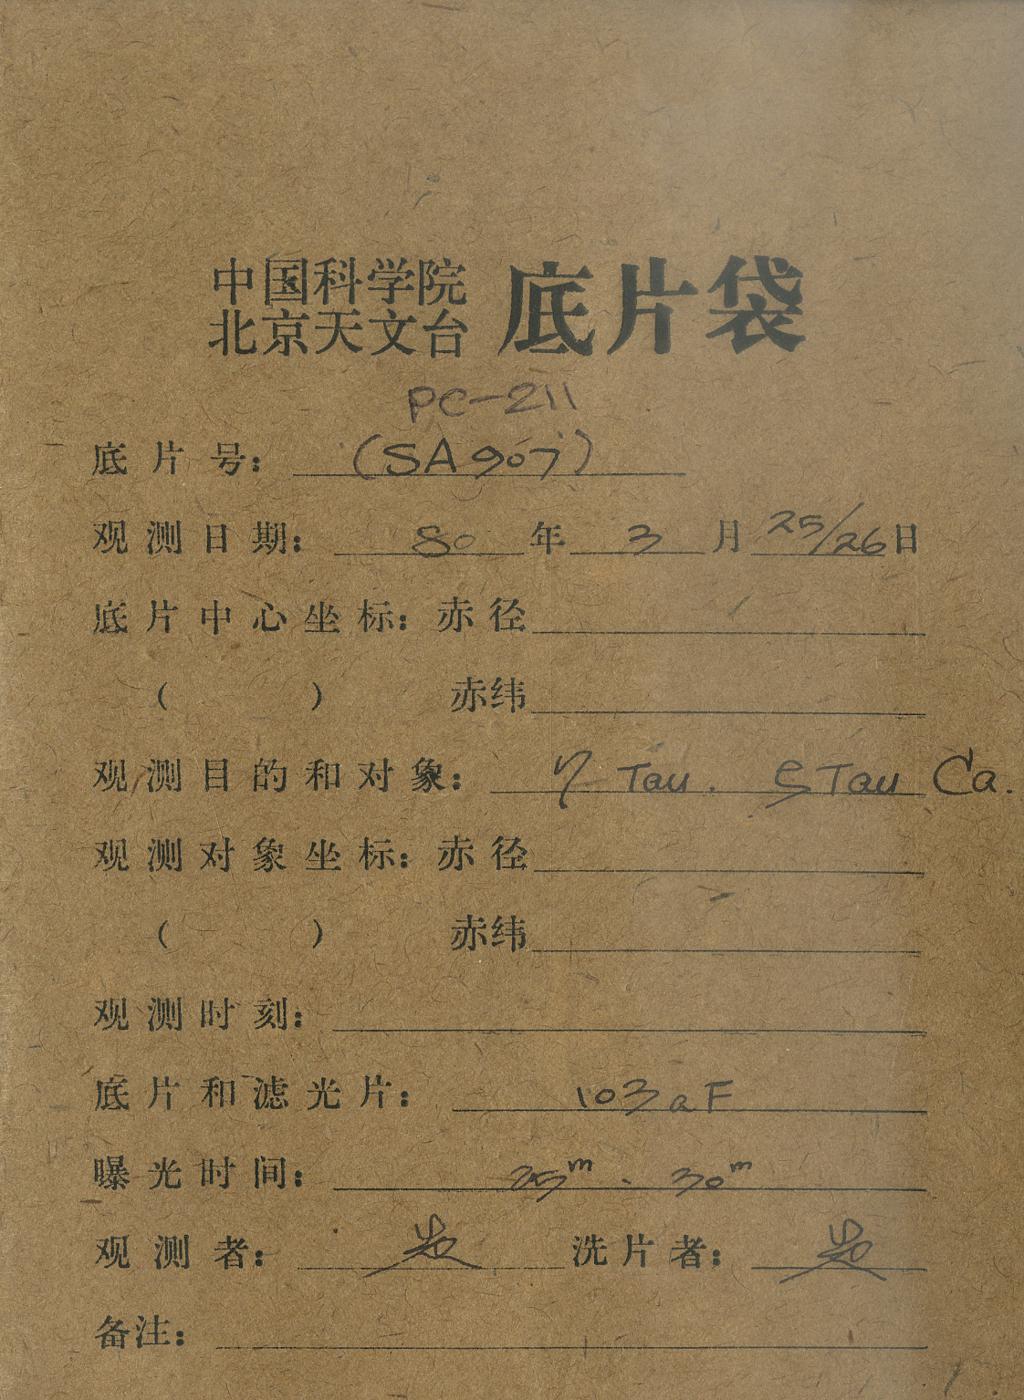 中国科学院
北京天文台 底片袋
PC-211
底片号： (SA907)
观测日期： 80 年 3 月 25/26 日
底片中心坐标：赤径
（ ） 赤纬
观测目的和对象： η Tau. ς Tau Ca.
观测对象坐标：赤径
（ ） 赤纬
观测时刻：
底片和滤光片： 103aF
曝光时间： 25m . 30m
观测者： 洗片者：
备注：